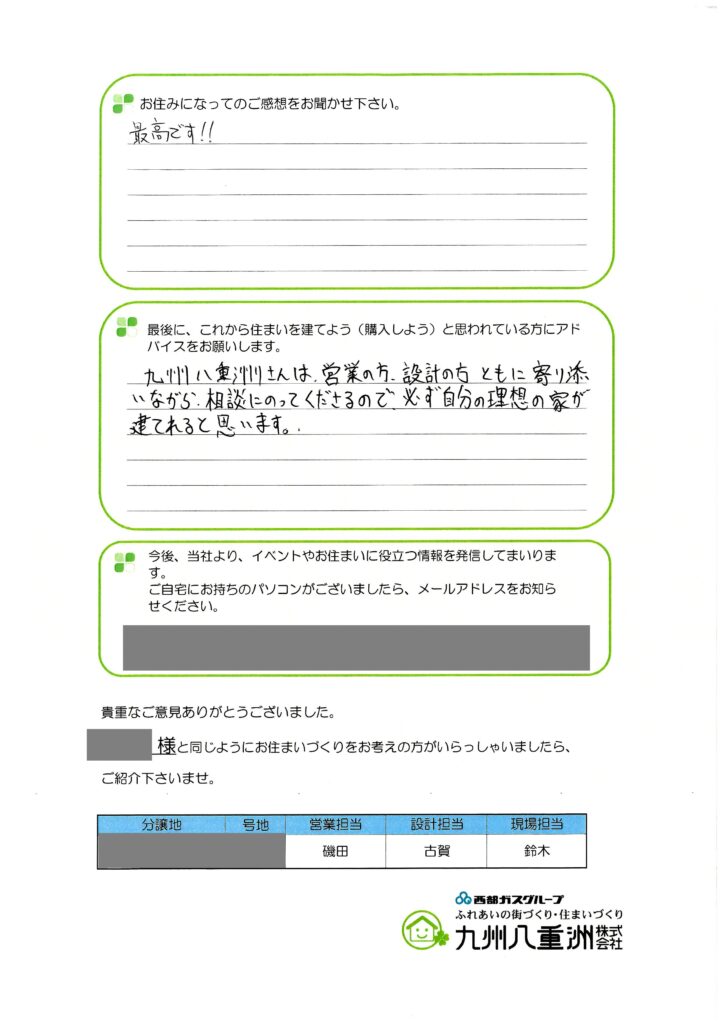 お住みになってのご感想をお聞かせ下さい。
最高です!!
最後に、これから住まいを建てよう（購入しよう）と思われている方にアド
バイスをお願いします。
九州八重洲さんは、営業の方、設計の方ともに寄り添
いながら、相談にのってくださるので、必ず自分の理想の家が
建てれると思います。
今後、当社より、イベントやお住まいに役立つ情報を発信してまいりま
す。
ご自宅にお持ちのパソコンがございましたら、メールアドレスをお知ら
せください。
貴重なご意見ありがとうございました。
様と同じようにお住まいづくりをお考えの方がいらっしゃいましたら、
ご紹介下さいませ。
分譲地 号地 営業担当 設計担当 現場担当
磯田 古賀 鈴木
西部ガスグループ
ふれあいの街づくり・住まいづくり
九州八重洲株式会社